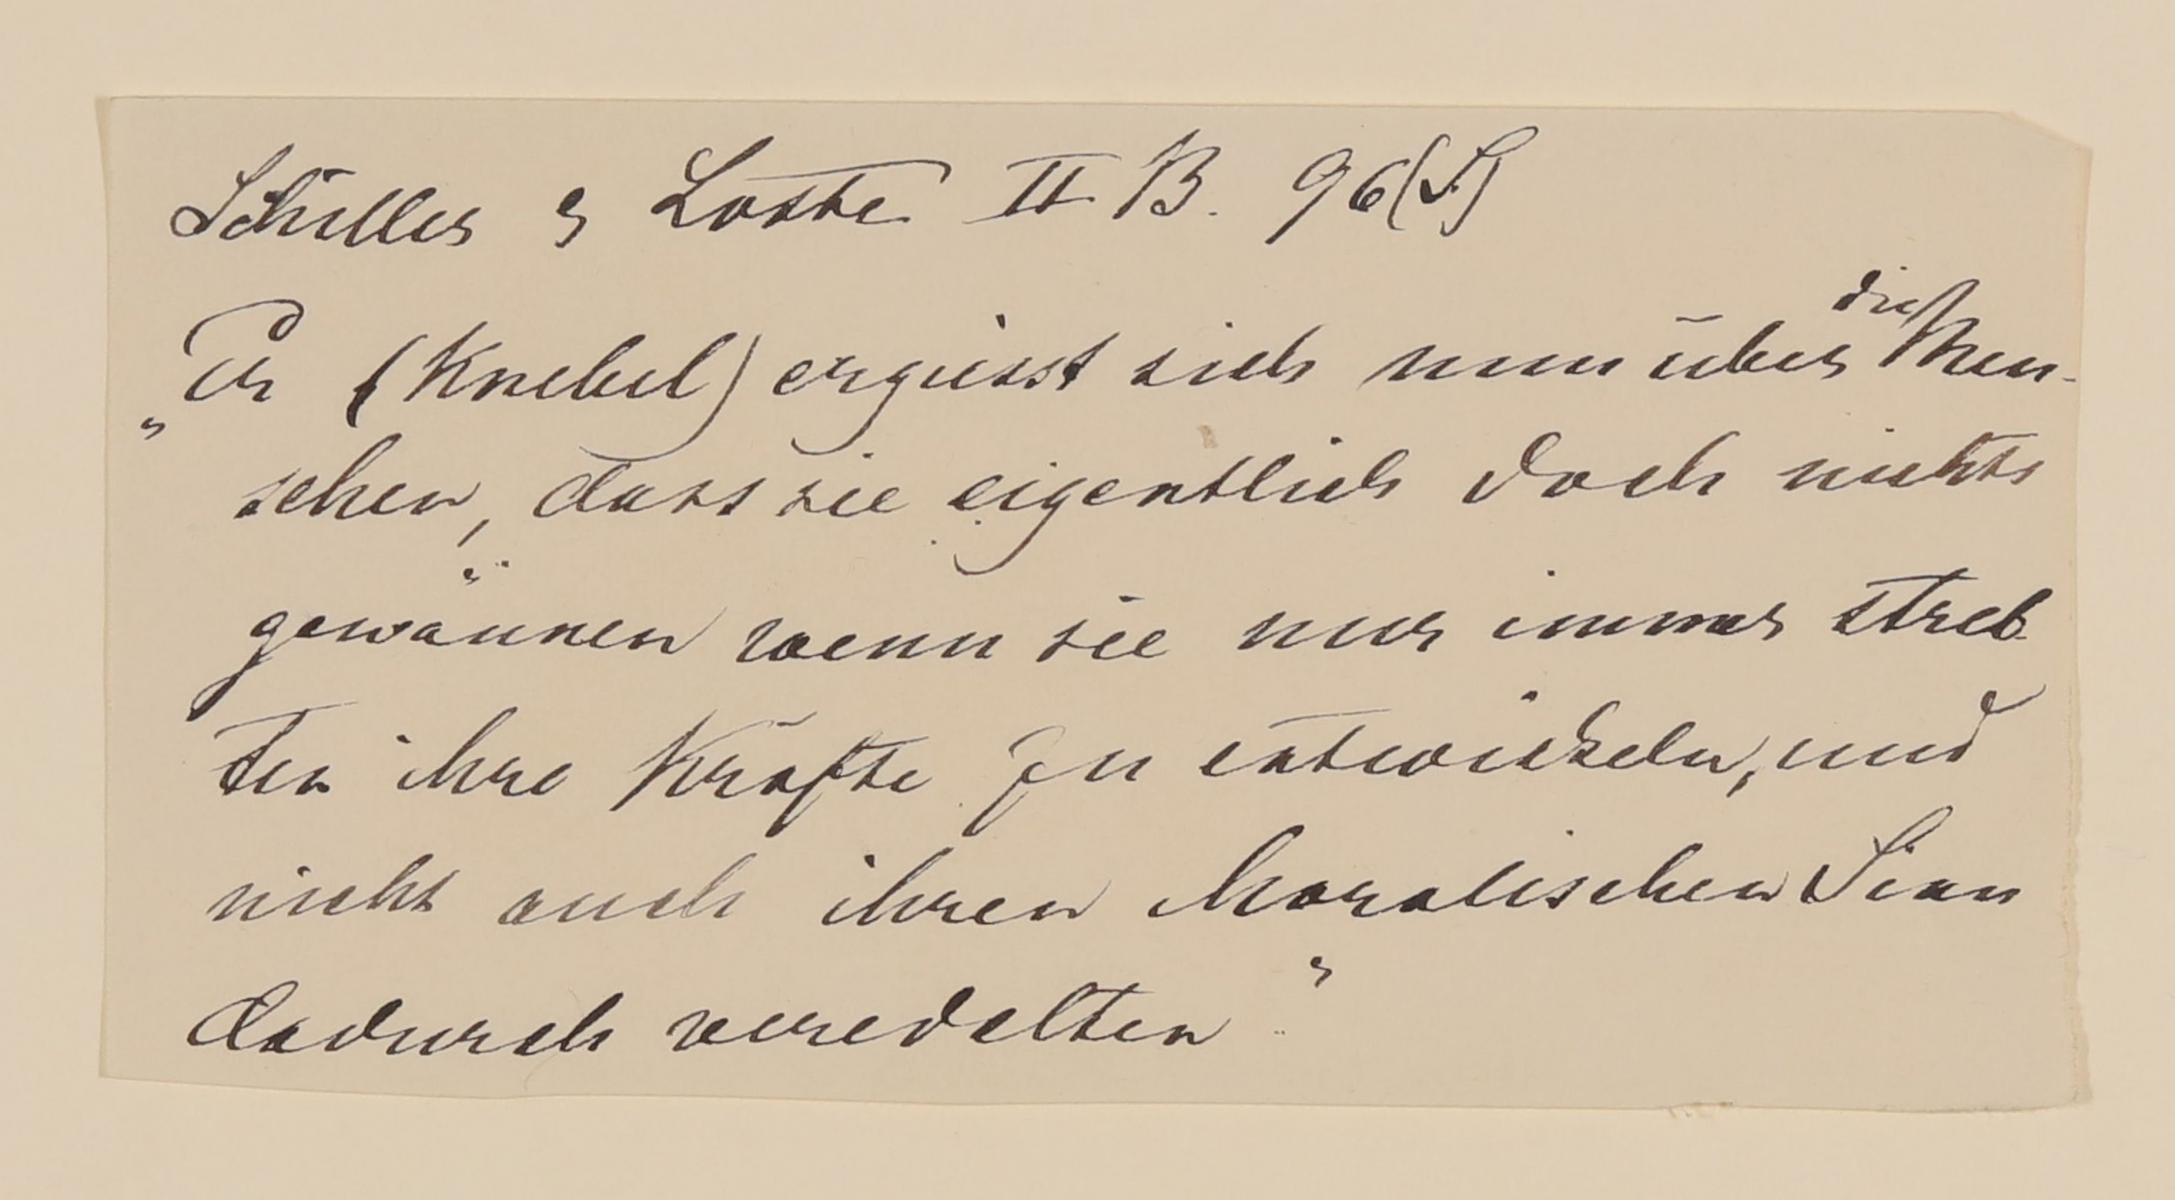 Schiller & Lotte II B. 96 (S)
„Er (Knebel) ergiesst sich nun über die Men-
schen, dass sie eigentlich doch nichts
gewännen wenn sie nur immer streb-
ten ihre Kräfte zu entwickeln, und
nicht auch ihren Moralischen Sinn
dadurch veredelten"